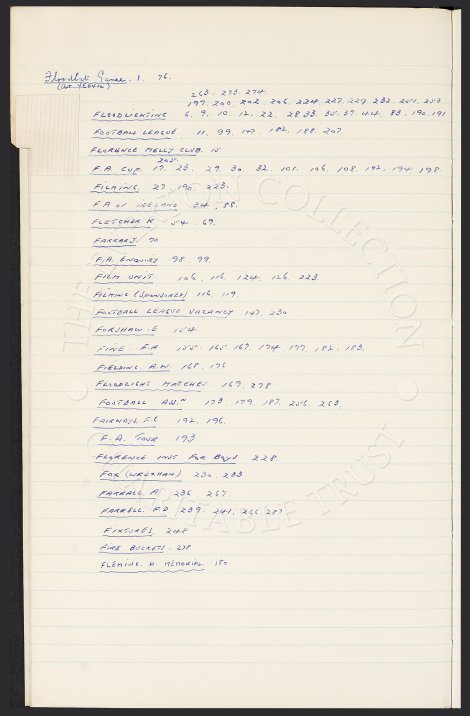 Floodlit Game. 1. 76.
(AT YEOVIL)
263. 273. 274.
197. 200. 202. 206. 224. 227. 229. 232. 251. 253
FLOODLIGHTING 6. 9. 10. 12. 22. 28. 33. 35. 37. 44. 83. 190. 191
FOOTBALL LEAGUE 11. 99. 147. 182. 188. 207.
FLORENCE MELLY CLUB. 15
205.
F.A. CUP. 17. 23. 29. 30. 32. 101. 106. 108. 192. 194. 198
FILMING. 27. 190. 223.
F.A OF IRELAND 34. 88.
FLETCHER K 54. 69.
FARRAR J. 70
F.A. ENQUIRY 98. 99.
FILM UNIT 106. 116. 124. 126. 223.
FILMING (SPONSORED) 116. 119.
FOOTBALL LEAGUE VACANCY 147. 230
FORSHAW. E 154
FINE. F.A 155. 165. 167. 174. 177. 182. 183.
FIELDING. A.W. 168. 176
FLOODLIGHT MATCHES. 169. 278
FOOTBALL ASS.N 173. 179. 187. 256. 263.
FAIRWAYS. F.C 192. 196.
F.A. TOUR 193
FLORENCE INST FOR BOYS 228.
FOX (WREXHAM) 230. 233
FARRALL. A 236. 267
FARRELL. P.D 239. 241. 266. 287.
FIXTURES. 248
FIRE BUCKETS. 278
FLEMING. H. MEMORIAL. 180
THE COLLECTION
CHARITABLE TRUST